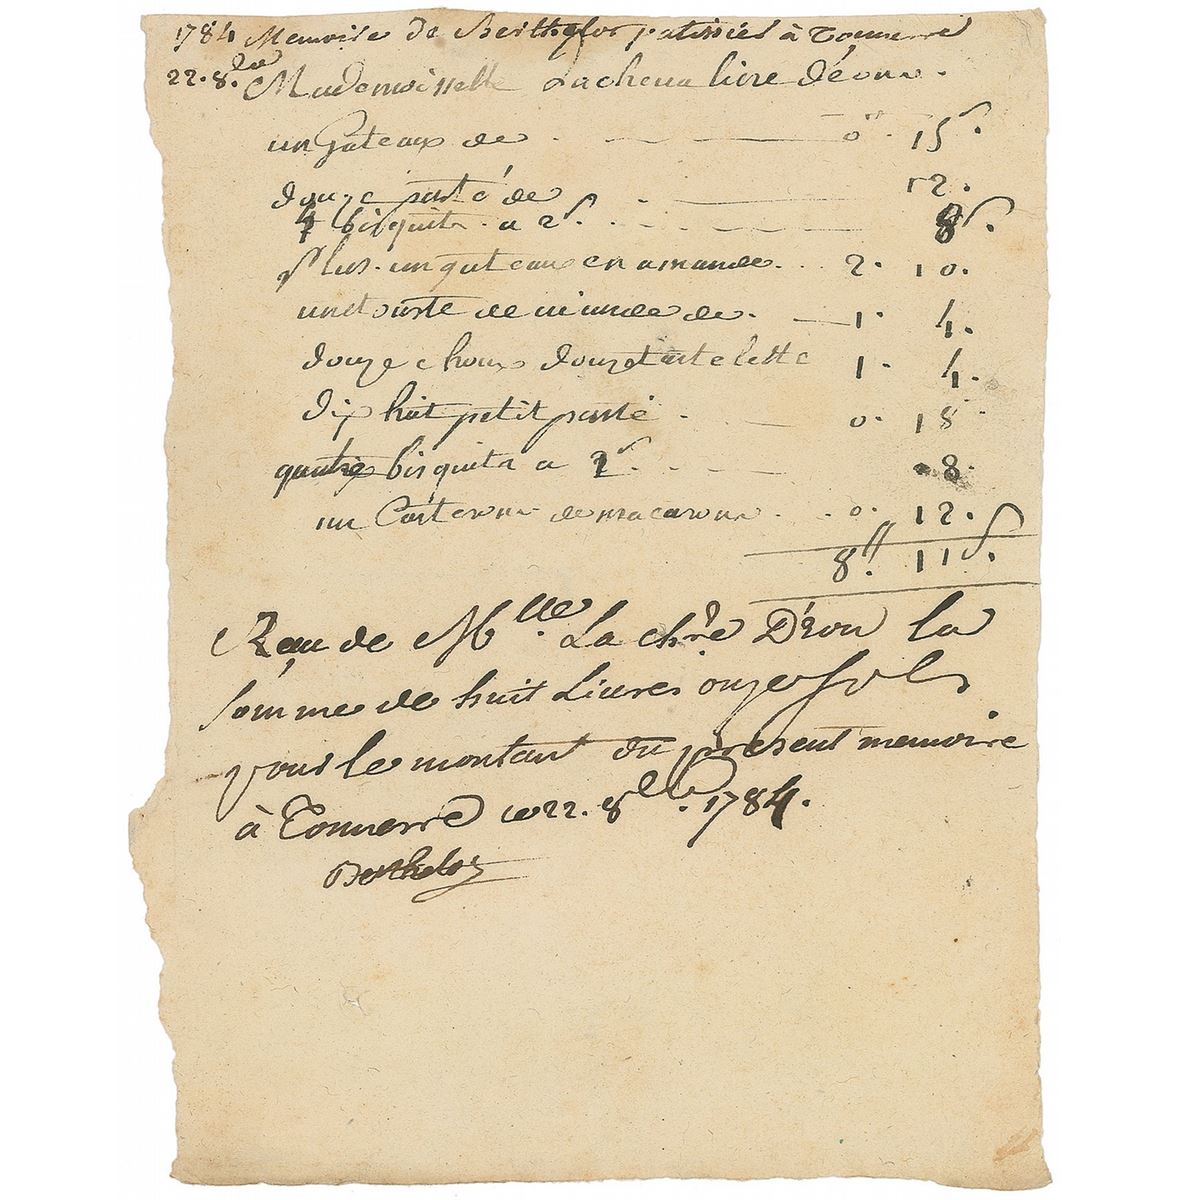 1784 Memoire de Berthelot patissier à Tonnerre
22. 8.bre Mademoiselle Lachevaliere déoune.
un Gateaux de . - - 0" 15s.
douze pasté de - 12.
4 bisquits a 2s. - - 8s.
plus un gateaux en amande. .. 2. 10.
une tourte de viande de. - 1. 4.
douze choux douze tartelette 1. 4.
dix huit petit pasté . - 0. 18
quatre bisquits a 2s. - - 8.
un Carteronne de macaronne . . 0. 12.
8.tt 11s.
Reçu de Mlle. La chre D'Eon la
somme de huit Livres onze sols
pour le montant du present memoire
à Tonnerre ce 22. 8bre. 1784.
Berthelot